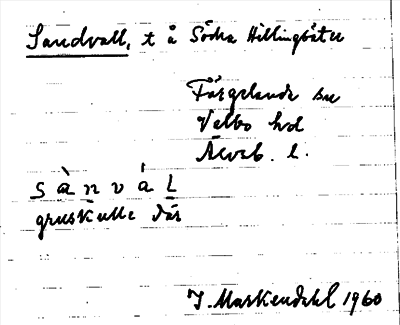 Sandvall, t å Södra Hillingsäter
Färgelanda sn
Valbo hd
Älvsb. l.
s à n v á l
gruskulle där
J. Markendahl 1960